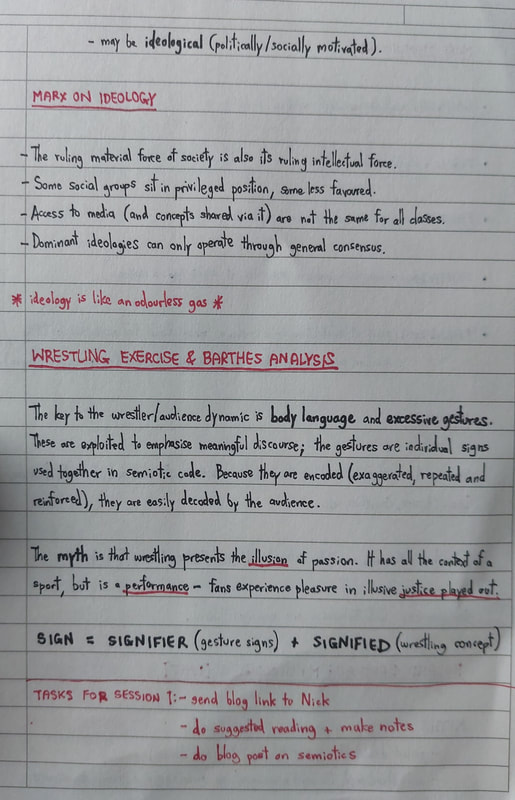 - may be ideological (politically/socially motivated).
MARX ON IDEOLOGY
- The ruling material force of society is also its ruling intellectual force.
- Some social groups sit in privileged position, some less favoured.
- Access to media (and concepts shared via it) are not the same for all classes.
- Dominant ideologies can only operate through general consensus.
* ideology is like an odourless gas *
WRESTLING EXERCISE & BARTHES ANALYSIS
The key to the wrestler/audience dynamic is body language and excessive gestures.
These are exploited to emphasise meaningful discourse; the gestures are individual signs
used together in semiotic code. Because they are encoded (exaggerated, repeated and
reinforced), they are easily decoded by the audience.
The myth is that wrestling presents the illusion of passion. It has all the context of a
sport, but is a performance - fans experience pleasure in illusive justice played out.
SIGN = SIGNIFIER (gesture signs) + SIGNIFIED (wrestling concept)
TASKS FOR SESSION 1:- send blog link to Nick
- do suggested reading + make notes
- do blog post on semiotics